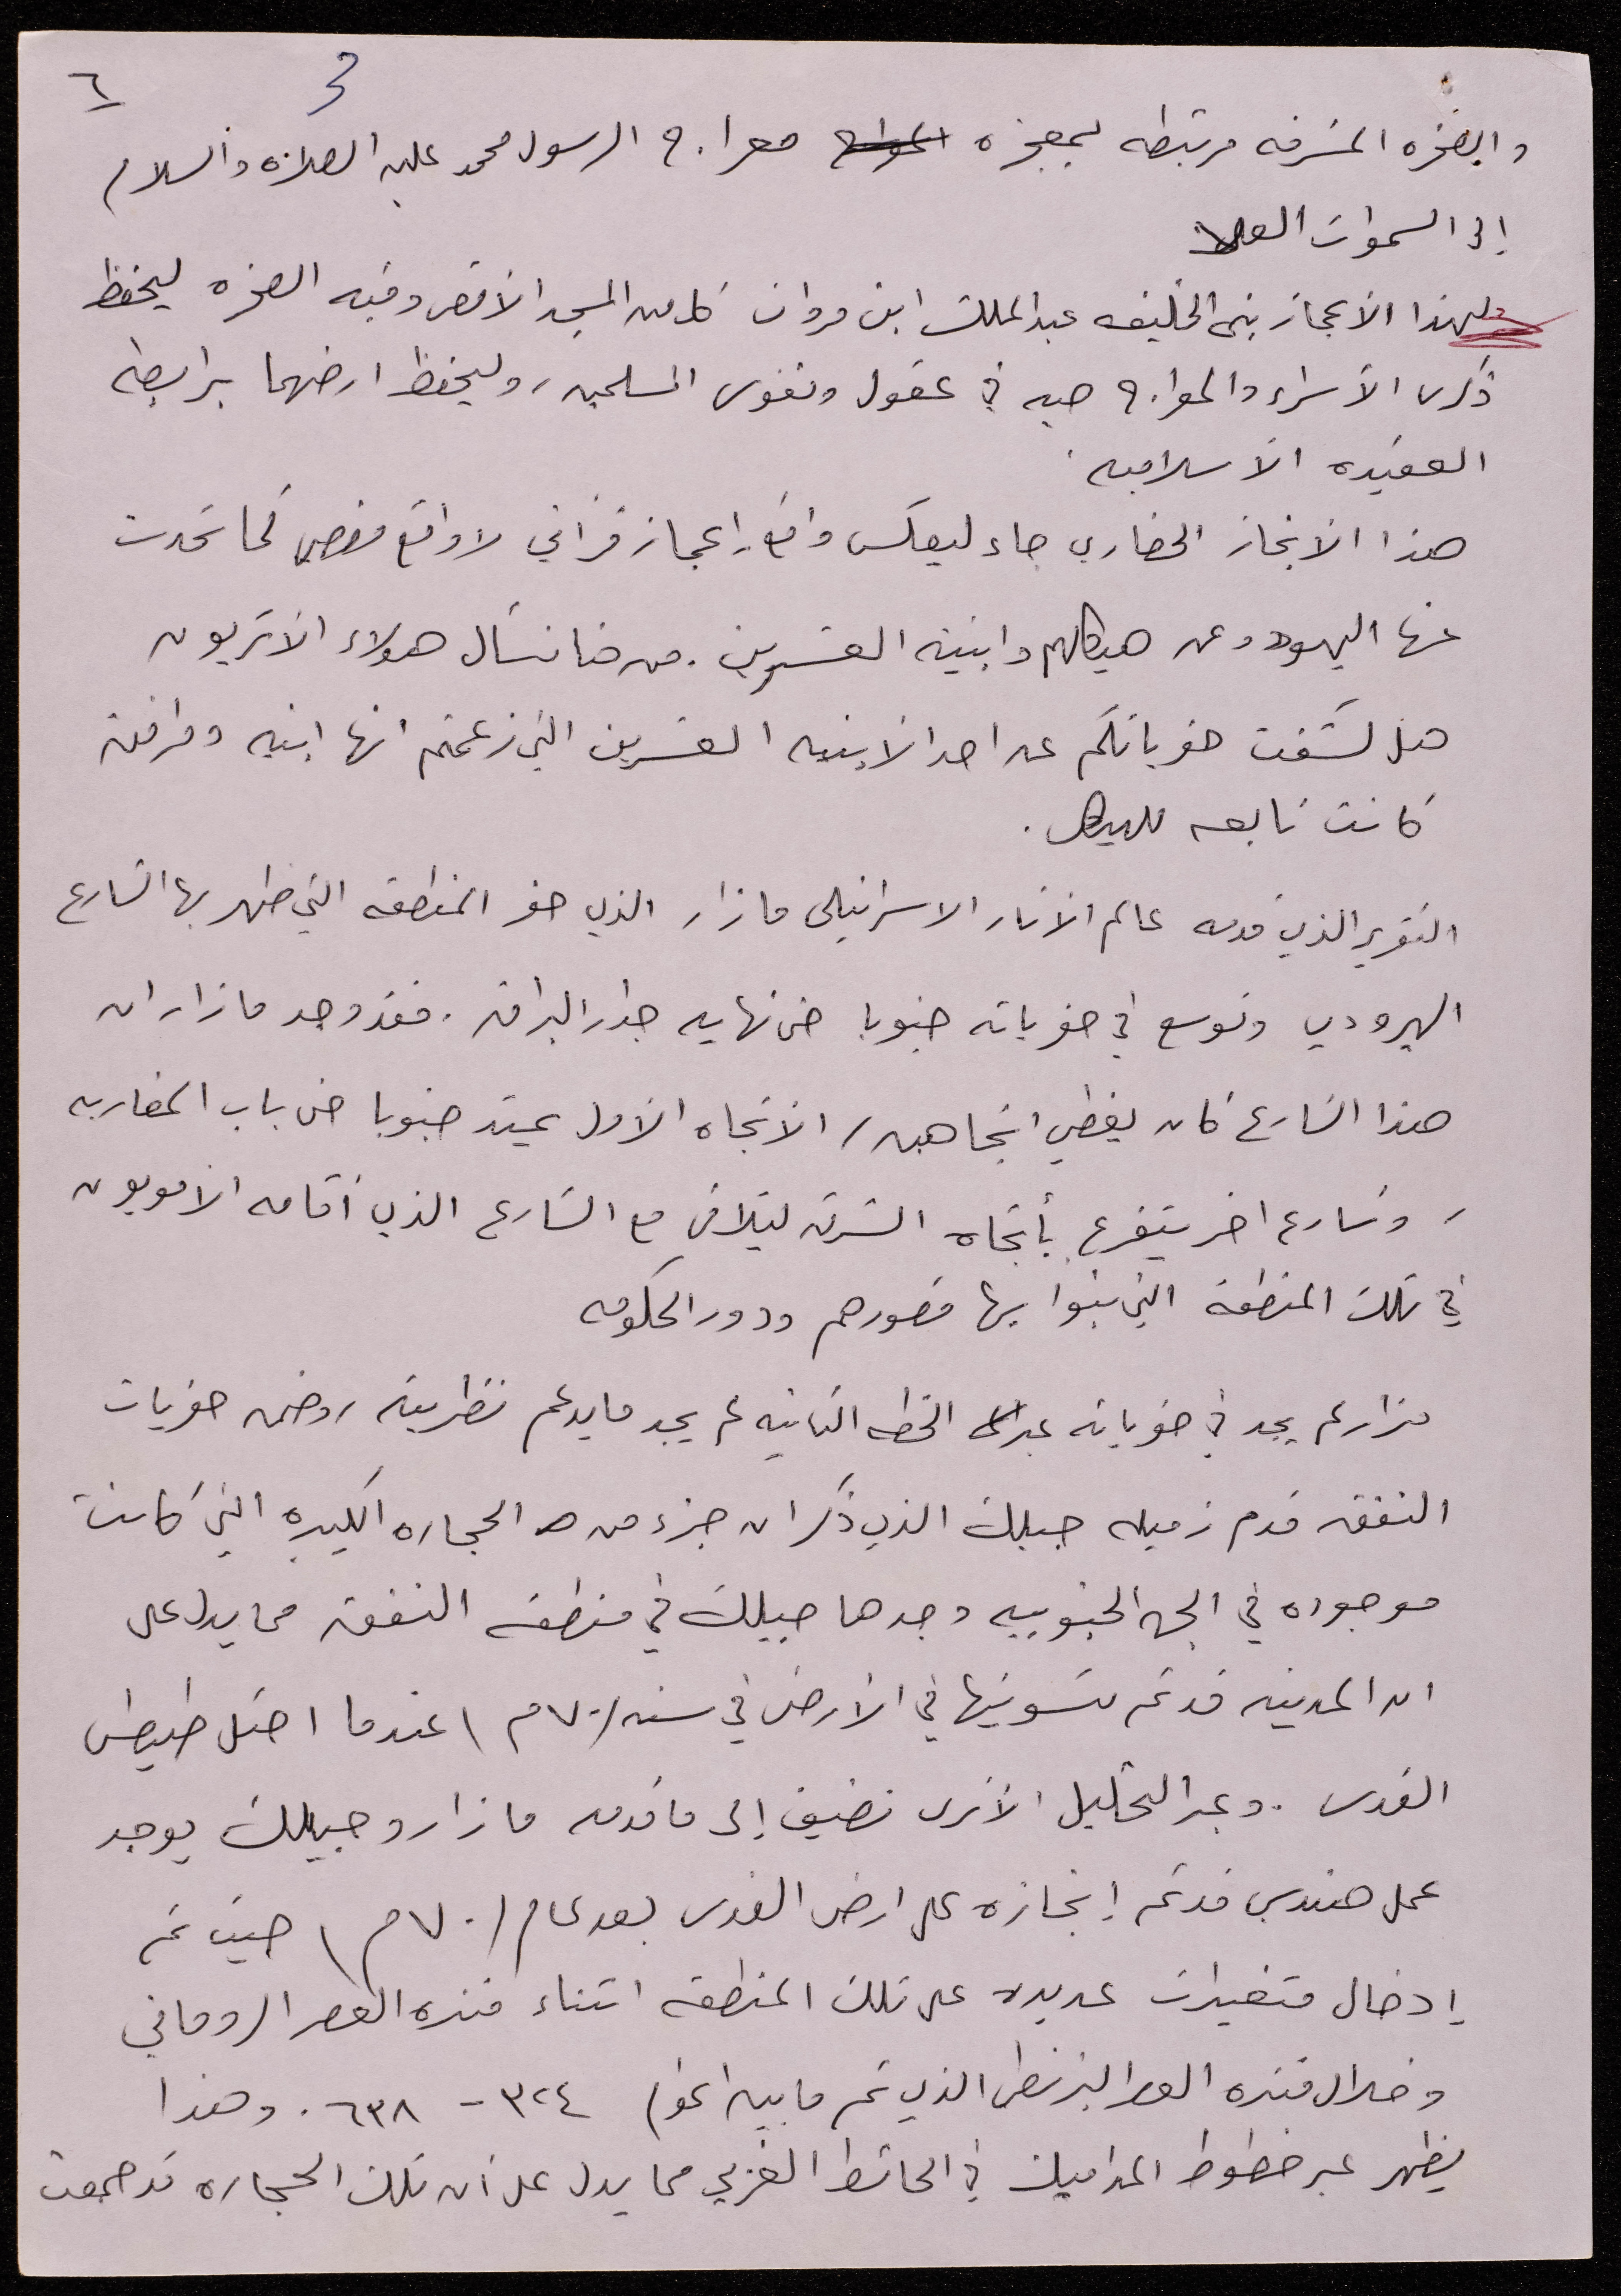 ٦
3
والصخره المشرفه مرتبطه بمعجزه معراج الرسول محمد عليه الصلاه والسلام
إلى السموات العلا
ولهذا الأعجاز بنى الخليفه عبد الملك ابن مروان كلا من المسجد الأقصى وقبه الصخره ليحفظ
ذكرى الأسراء والمعراج حيه في عقول ونفوس المسلمين، وليحفظ ارضهما برابطه
العقيده الأسلاميه.
هذا الأنجاز الحضاري جاء ليعكس واقع إعجاز قرآني لا واقع قصص كما تحدث
عنها اليهود وعن هيكلهم وابنيه العشرين. من هنا نسأل هولاء الأثريون
هل كشفت حفرياتكم عن احد الأبنيه العشرين التي زعمتم انها ابنيه ومرافق
كانت تابعه للهيكل.
التقرير الذي قدمه عالم الأثار الاسرائيلي مازار الذي حفر المنطقه التي ظهر بها الشارع
الهيرودي وتوسع في حفرياته جنوبا حتى نهايه جدار البراق. فقد وجد مازار ان
هذا الشارع كان يغطي اتجاهين، الأتجاه الأول يمتد جنوبا حتى باب المغاربه
، وشارع اخر يتفرع بأتجاه الشرق ليتلاقى مع الشارع الذي أقامه الأمويون
في تلك المنطقة التي بنوا بها قصورهم ودور الحكومه
مزار لم يجد في حفرياته عبر الخطه الثانيه لم يجد ما يدعم نظريته، وضمن حفريات
النفق قدم زميله جبلك الذي ذكر ان جزء من الحجاره الكبيره التي كانت
موجوده في الجهه الجنوبيه وجدها جبيلك في منطقه النفق مما يدل على
ان المدينه قد تم تسويتها في الأرض في سنه (٧٠م) عندما احتل طيطس
القدس. وعبر التحليل الأثري نضيف إلى ما قدمه مازار وجبيلك يوجد
عمل هندسي قد تم إنجازه على ارض القدس بعد عام (٧٠م) حيث تم
إدخال متغيرات عديده على تلك المنطقه اثناء فتره العصر الروماني
وخلال فتره العصر البزنطي الذي تم ما بين اعوام ٣٢٤ - ٦٣٨. وهذا
يظهر عبر خطوط المداميك في الحائط الغربي مما يدل على أن تلك الحجاره قد جمعت